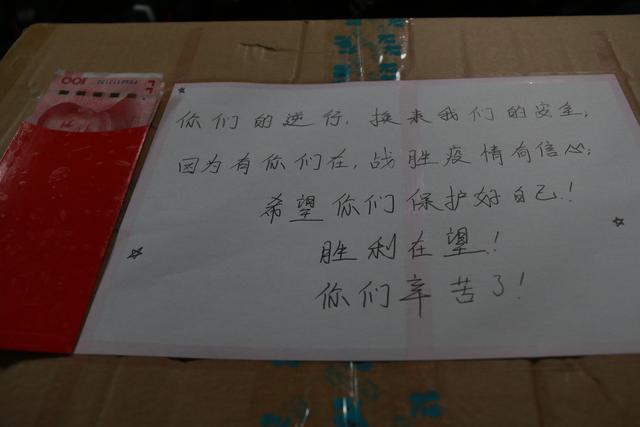 100
你们的逆行，换来我们的安全，
因为有你们在，战胜疫情有信心；
希望你们保护好自己！
胜利在望！
你们辛苦了！